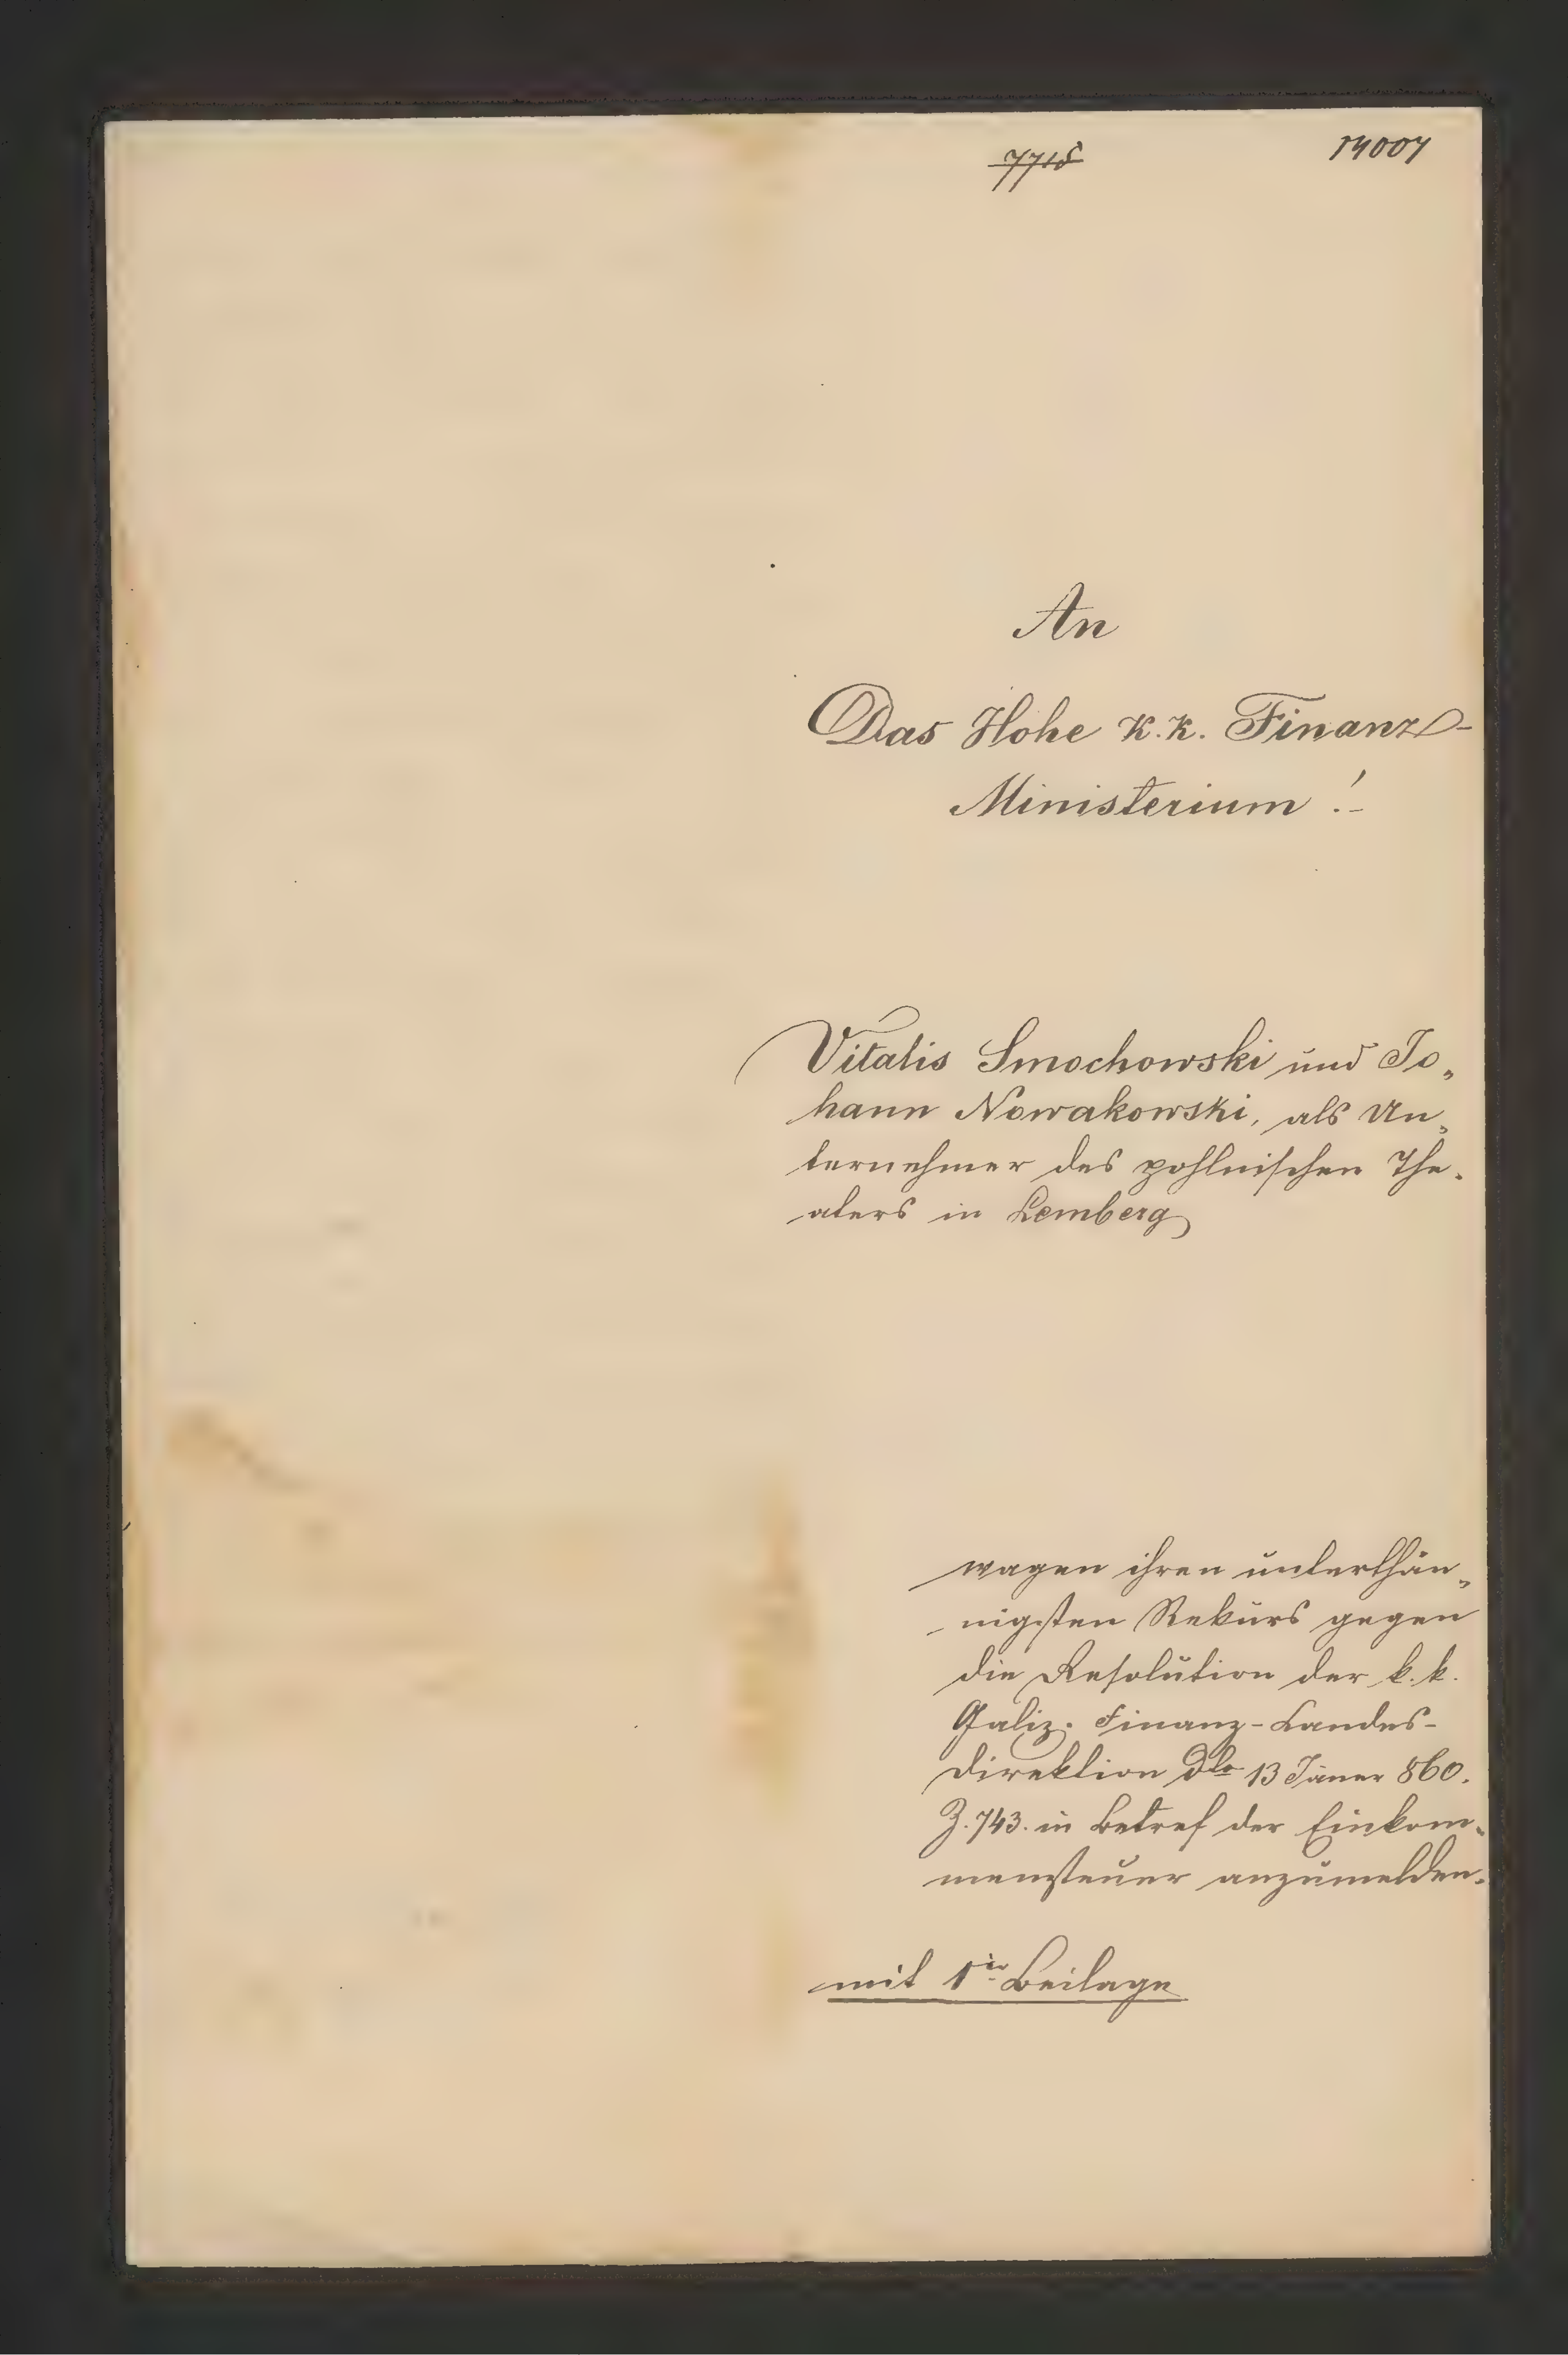 7715 14004
An
Das Hohe K. K. Finanz-
Ministerium!-
Vitalis Smochowski und Jo„
hann Nowakowski, als Un„
ternehmer des pohlnischen The„
aters in Lemberg
wagen ihren unterthän„
nigsten Rekurs gegen
die Resolution der k. k.
Galiz. Finanz-Landes-
Direktion dto 13 Jäner 860.
Z. 743. in Betref der Einkom„
mensteuer anzumelden.
mit 1er Beilage